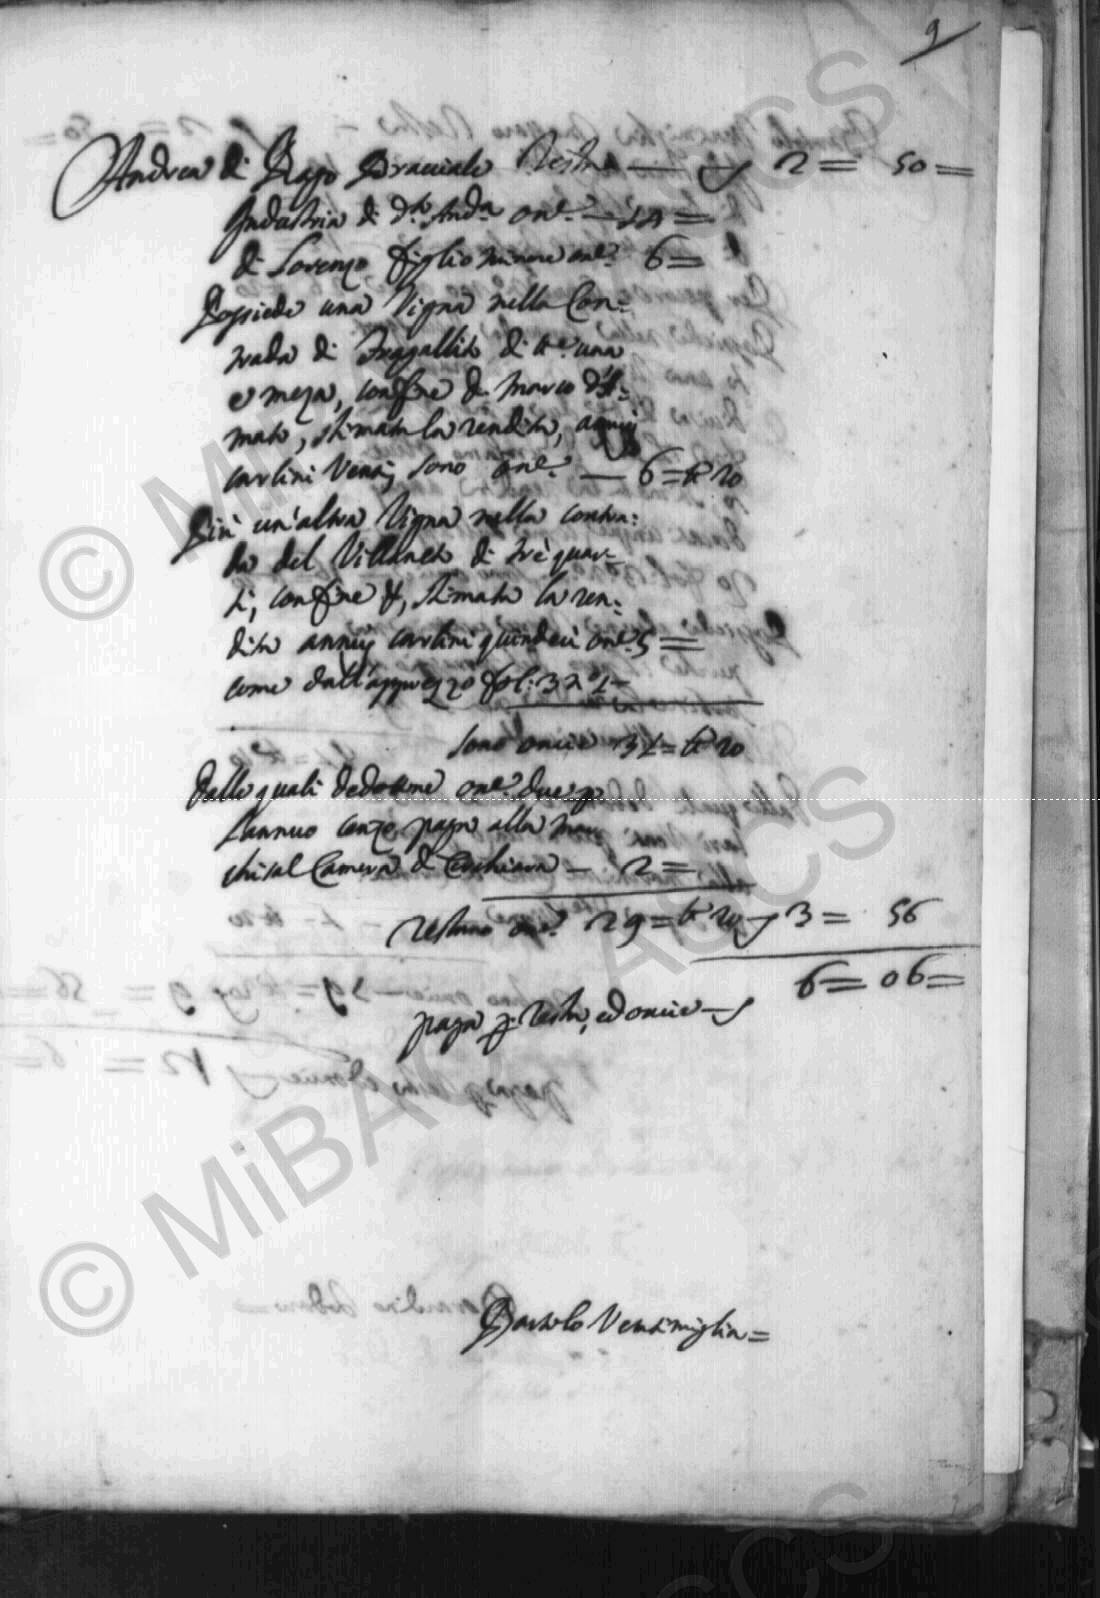 9
Andrea di Rago Bracciale Testa — 2 = 50 =
Industria di d.to And.a on.e — 14 =
di Lorenzo figlio minore on.e 6 =
Possiede una Vigna nella Con=
trada di Fragallito di tt.e una
e meza, confine di Marco d'A=
mato, stimata la rendita, annui
carlini venti, sono on.e — 6 = tt 20
Più un'altra Vigna nella contra:
da del Villaneto di trè quar=
ti, confine &, stimata la ren:
dita annui carlini quindeci on.e 5 =
come dall'apprezzo fol:
sono oncie 31 = tt 20
Dalle quali dedottone on.e due p
l'annuo cenzo, paga alla Mar
chisal Camera di Cerchiara — 2 =
restano on.e 29 = tt 20 3 = 56
6 = 06 =
paga p testa, ed oncie
Bartolo Ventimiglia =
© MiBAC ASCS
© MiBAC ASCS